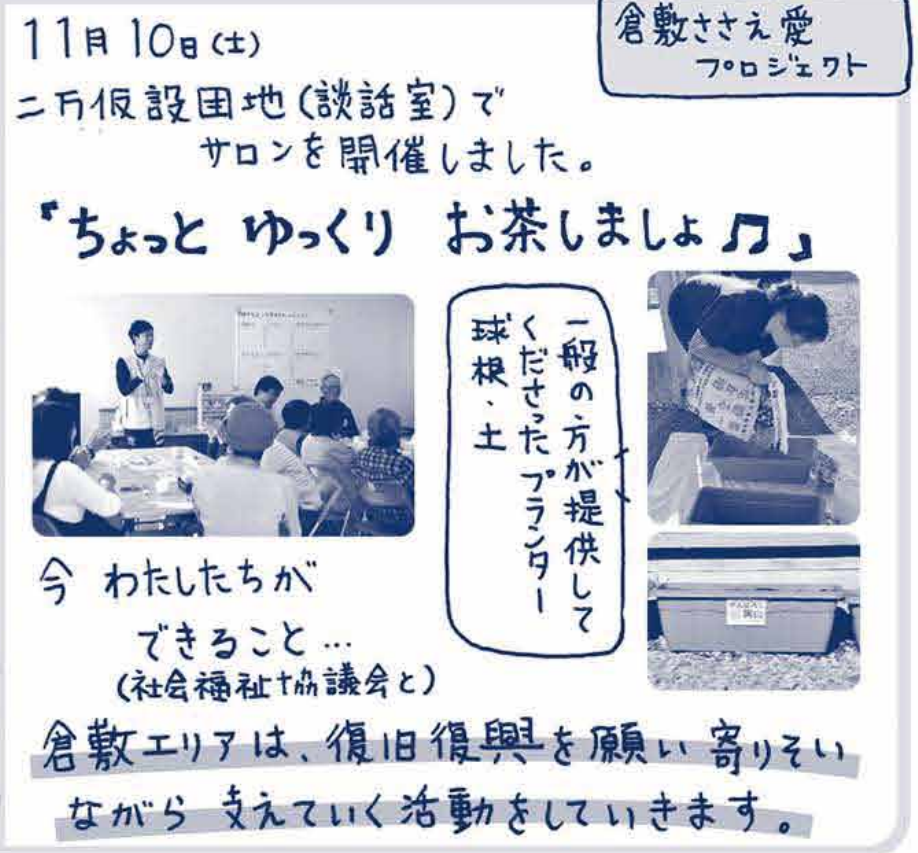 倉敷ささえ愛
プロジェクト
11月10日(土)
二万仮設団地(談話室)で
サロンを開催しました。
『ちょっと ゆっくり お茶しましょ♫』
一般の方が提供して
くださったプランター
球根、土
今 わたしたちが
できること…
(社会福祉協議会と)
倉敷エリアは、復旧復興を願い寄りそい
ながら 支えていく活動をしていきます。